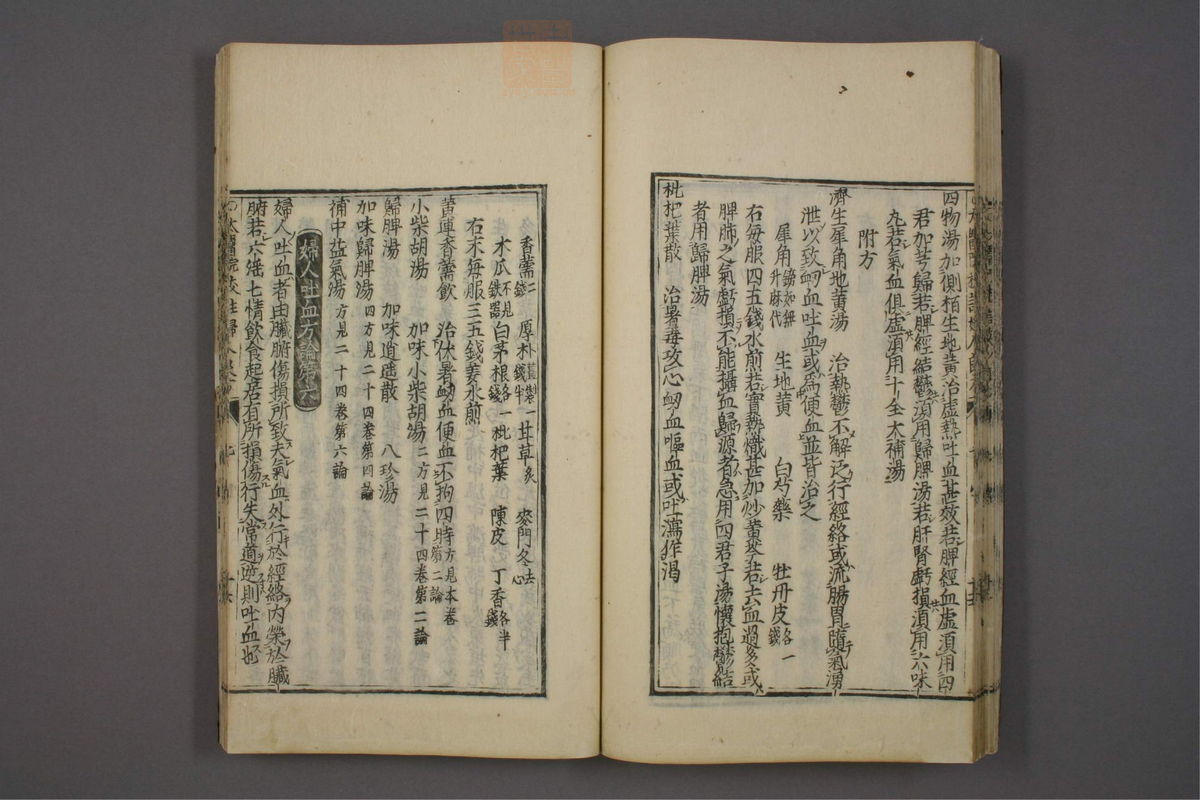 四物湯加側栢生地黄治虚熱吐血甚效若脾經血虚須用四
君加芎歸若脾經結鬱須用歸脾湯若肝腎虧損須用六味
丸若氣血俱虚須用十全大補湯
附方
濟生犀角地黄湯 治熱鬱不解泛行經絡或流腸胃隨氣湧
泄以致衂血吐血或為便血並皆治之
犀角 鎊如無升麻代 生地黄 白芍藥 牡丹皮 各一錢
右每服四五錢水煎若實熱熾甚加炒黄芩若去血過多或
脾肺之氣虧損不能攝血歸源者急用四君子湯懷抱鬱結
者用歸脾湯
枇杷葉散 治暑毒攻心衂血嘔血或吐瀉作渴
香薷 二錢 厚朴 薑製一錢半 甘草 炙 麥門冬 去心
木瓜 不見鐵器 白茅根 各一錢 枇杷葉 陳皮 丁香 各半錢
右末每服三五錢姜水煎
黄連香薷飲 治伏暑衂血便血不拘四時 方見本卷第二論
小柴胡湯 加味小柴胡湯 二方見二十四卷第二論
歸脾湯 加味逍遥散 八珍湯
加味歸脾湯 四方見二十四卷第四論
補中益氣湯 方見二十四卷第六論
婦人吐血方論第六
婦人吐血者由臟腑傷損所致夫氣血外行於經絡内榮於臟
腑若六婬七情飲食起居有所損傷行失常道逆則吐血也